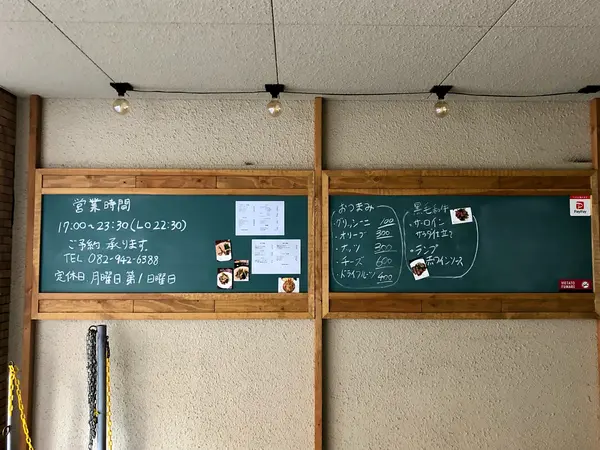 営業時間
17:00~23:30(LO22:30)
ご予約承ります。
TEL 082-942-6388
定休日.月曜日 第1日曜日
おつまみ
・グリッシーニ 100
・オリーブ 300
・ナッツ 300
・チーズ 600
・ドライフルーツ 400
黒毛和牛
・サーロイン
サラダ仕立て
・ランプ
赤ワインソース
PayPay